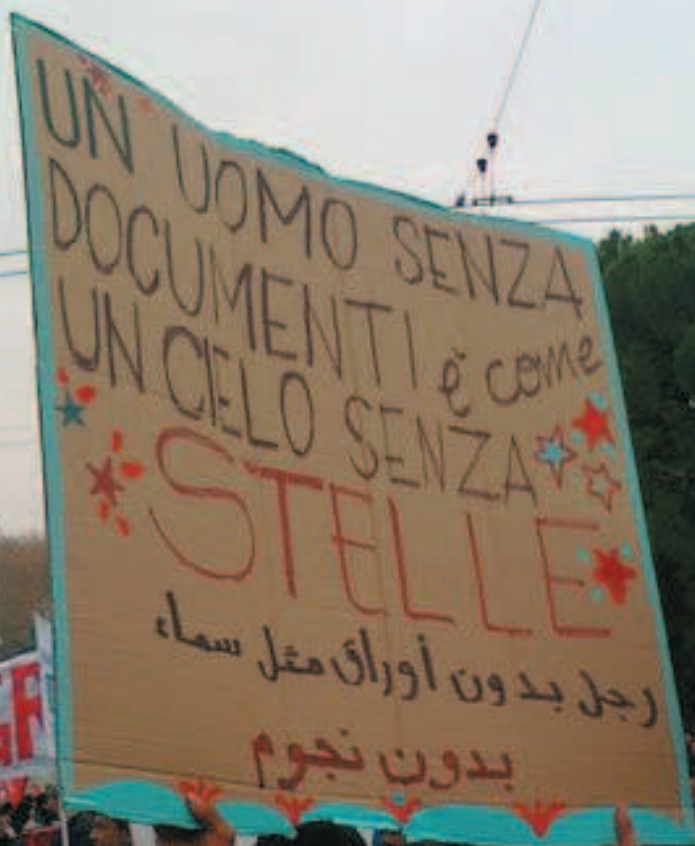 UN UOMO SENZA
DOCUMENTI è come
UN CIELO SENZA
STELLE
رجل بدون أوراق مثل سماء
بدون نجوم